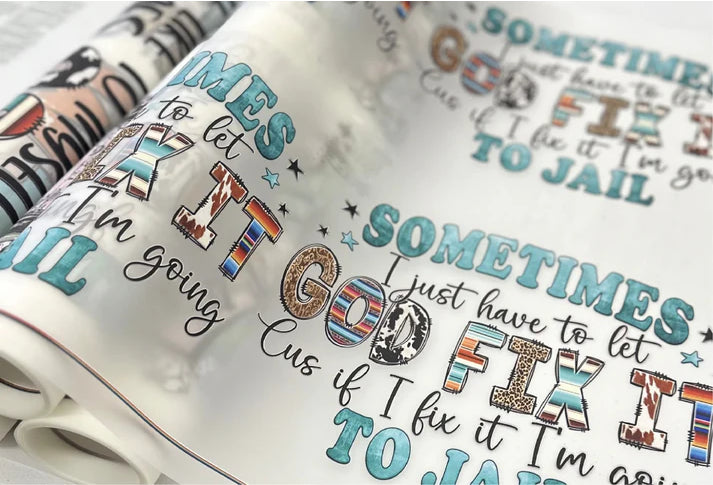 SOMETIMES
I just have to let
GOD FIX IT
Cus if I fix it I'm going
TO JAIL
SOMETIMES
I just have to let
GOD FIX IT
Cus if I fix it I'm goi
TO JAIL
IMES
to let
FIX IT
I'm going
AIL
going